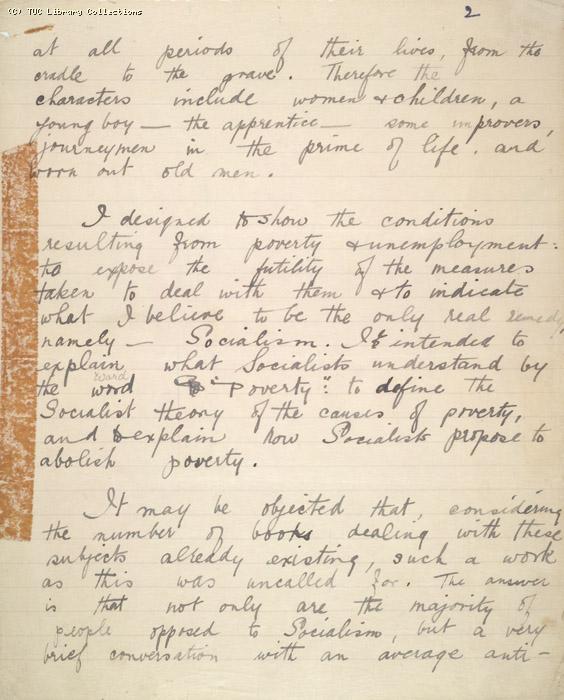 (C) TUC Library Collections
2
at all periods of their lives, from the
cradle to the grave. Therefore the
characters include women & children, a
young boy — the apprentice — some improvers,
journeymen in the prime of life. and
worn out old men.
I designed to show the conditions
resulting from poverty & unemployment:
to expose the futility of the measures
taken to deal with them & to indicate
what I believe to be the only real remedy
namely — Socialism. I intended to
explain what Socialists understand by
the word word "Poverty": to define the
Socialist theory of the causes of poverty,
and to explain how Socialists propose to
abolish poverty.
It may be objected that, considering
the number of books dealing with these
subjects already existing, such a work
as this was uncalled for. The answer
is that not only are the majority of
people opposed to Socialism, but a very
brief conversation with an average anti-